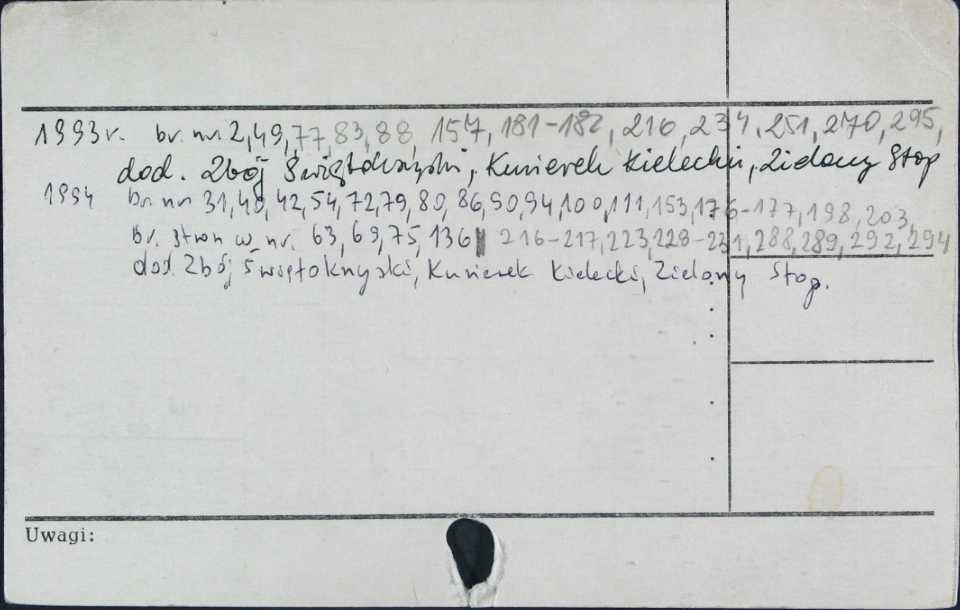 1993r. br. nr. 2, 49, 77, 83, 88, 157, 181-182, 216, 234, 251, 270, 295,
dod. Zbój Świętokrzyski, Kurierek Kielecki, Zielony Stop
1994 br. nr 31, 40, 42, 54, 72, 79, 80, 86, 90, 94, 100, 111, 153, 176-177, 198, 203,
br. stron w nr. 63, 69, 75, 136 216-217, 223, 228-231, 288, 289, 292, 294
dod. Zbój Świętokrzyski, Kurierek Kielecki, Zielony Stop.
Uwagi: